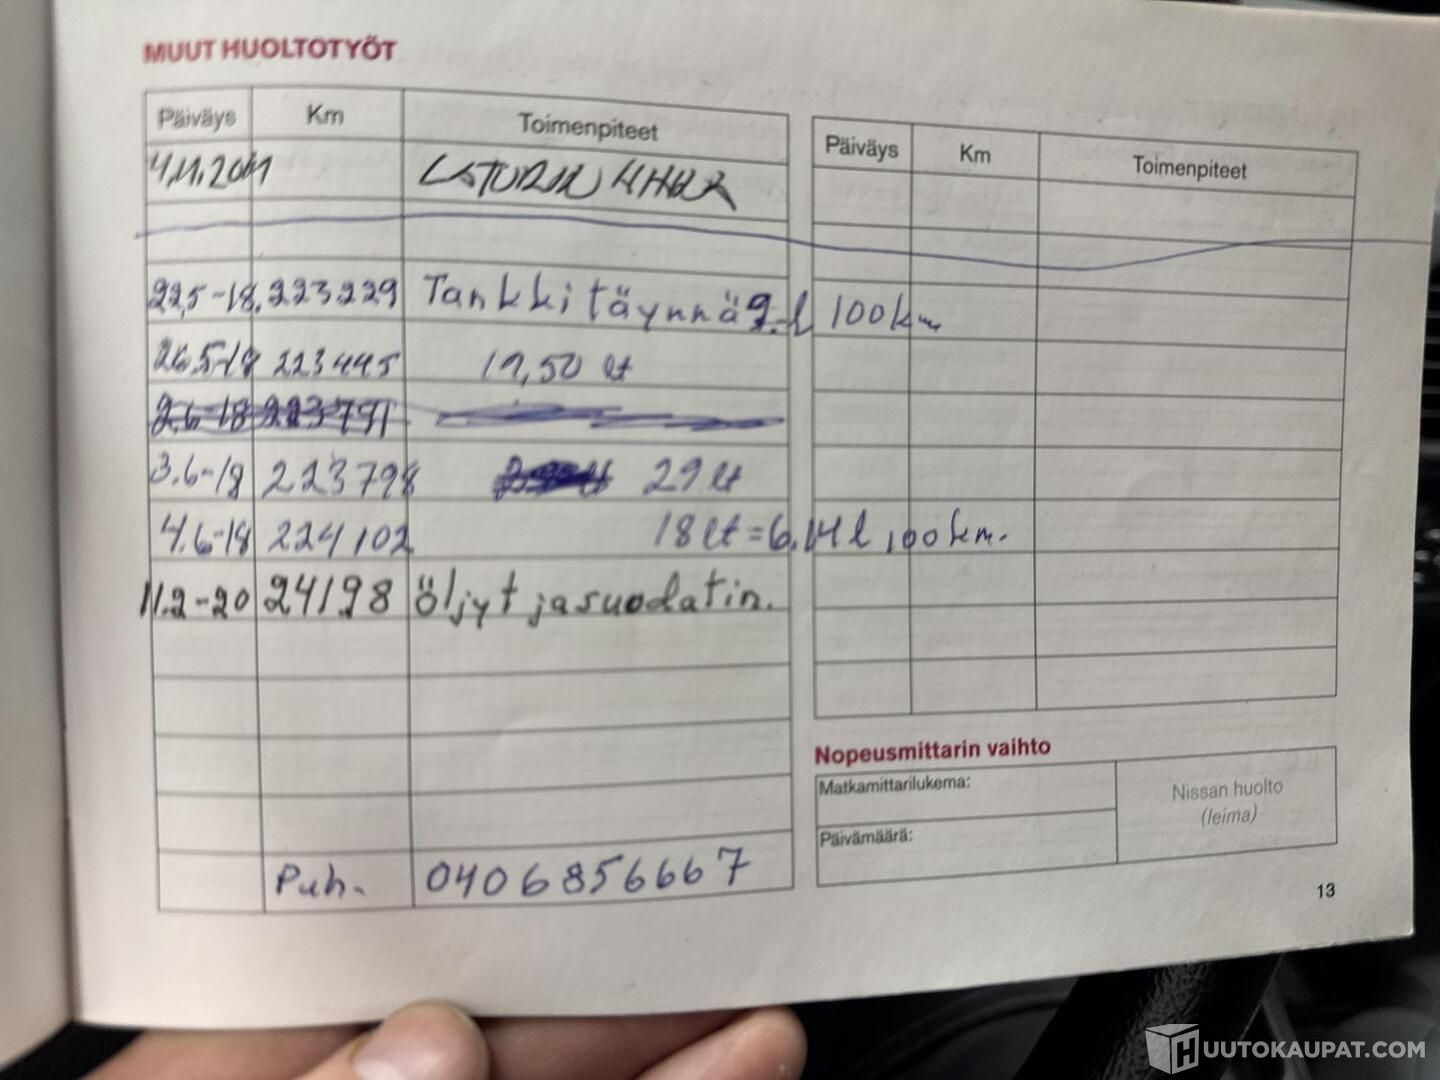 MUUT HUOLTOTYÖT
Päiväys Km Toimenpiteet
4.11.2011 LATURIN HIHNA
22,5-18. 223229 Tankki täynnä 9.l 100km
26,5-18 223445 17,50 lt
2.6-18 223791
3.6-18 223798 29 lt
4.6-18 224102 18 lt = 6.14 l 100 km.
11.2-20 24198 öljyt ja suodatin.
Puh. 0406856667
Päiväys Km Toimenpiteet
Nopeusmittarin vaihto
Matkamittarilukema:
Päivämäärä:
Nissan huolto
(leima)
13
HUUTOKAUPAT.COM